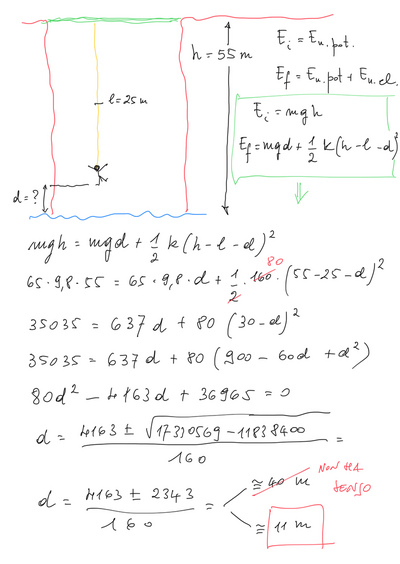 h = 55 m
l = 25 m
d = ?
Ei = En. pot.
Ef = En. pot + En. el.
Ei = mgh
Ef = mgd + 1/2 k (h - l - d)²
⇓
mgh = mgd + 1/2 k (h - l - d)²
80
65 · 9,8 · 55 = 65 · 9,8 · d + 1/2 · 160 · (55 - 25 - d)²
35035 = 637 d + 80 (30 - d)²
35035 = 637 d + 80 (900 - 60d + d²)
80d² - 4163 d + 36965 = 0
d = (4163 ± √(17330569 - 11838400)) / 160 =
d = (4163 ± 2343) / 160 =
≅ 40 m NON HA SENSO
≅ 11 m